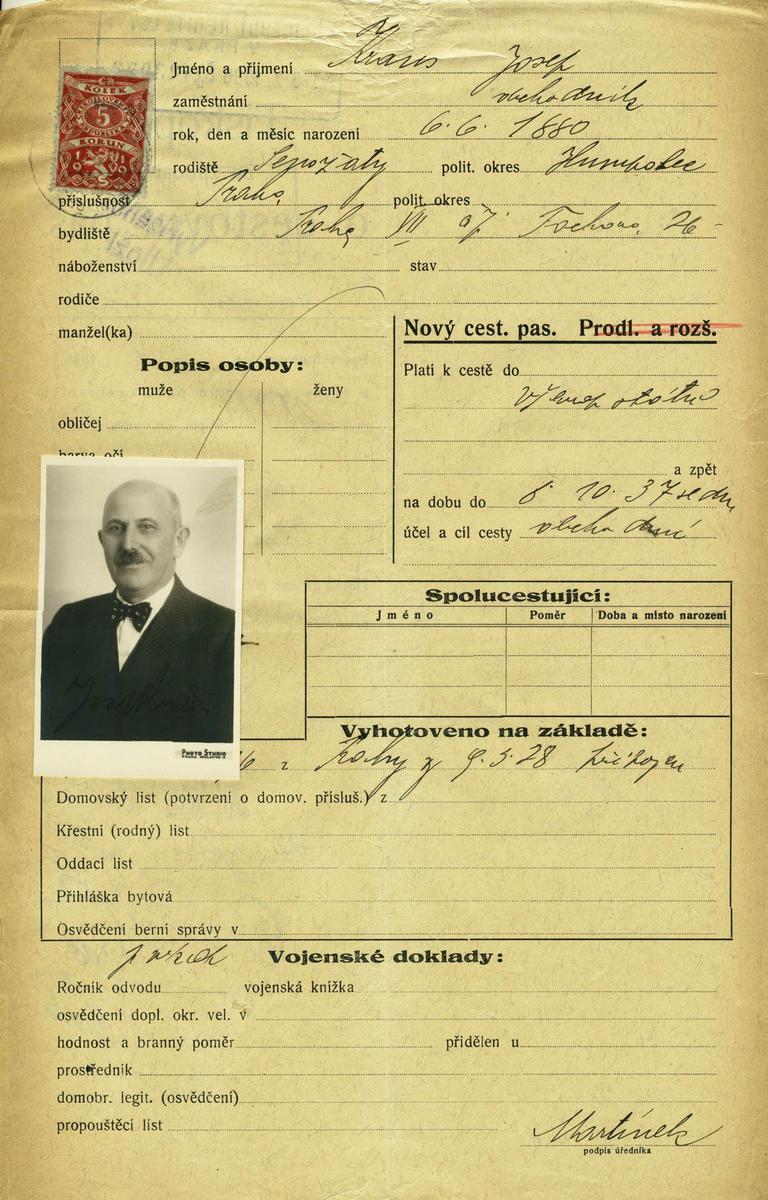 KOLEK
5
KORUN
1919
Jméno a příjmení Kraus Josef
zaměstnání obchodník
rok, den a měsíc narození 6. 6. 1880
rodiště Senožaty polit. okres Humpolec
příslušnost Praha polit. okres
bydliště Praha VII Fochova 26
náboženství stav
rodiče
manžel(ka)
Nový cest. pas. Prodl. a rozš.
Popis osoby:
muže ženy
obličej
barva očí
Platí k cestě do
všech států
a zpět
na dobu do 8. 10. 37
účel a cíl cesty obchodní
Spolucestující:
Jméno Poměr Doba a místo narození
Josef Kraus
PHOTO STUDIO
Vyhotoveno na základě:
z Prahy z 9. 5. 28
Domovský list (potvrzení o domov. přísluš.) z
Křestní (rodný) list
Oddací list
Přihláška bytová
Osvědčení berní správy v
Vojenské doklady:
Ročník odvodu vojenská knížka
osvědčení dopl. okr. vel. v
hodnost a branný poměr přidělen u
prostředník
domobr. legit. (osvědčení)
propouštěcí list
Martínek
podpis úředníka